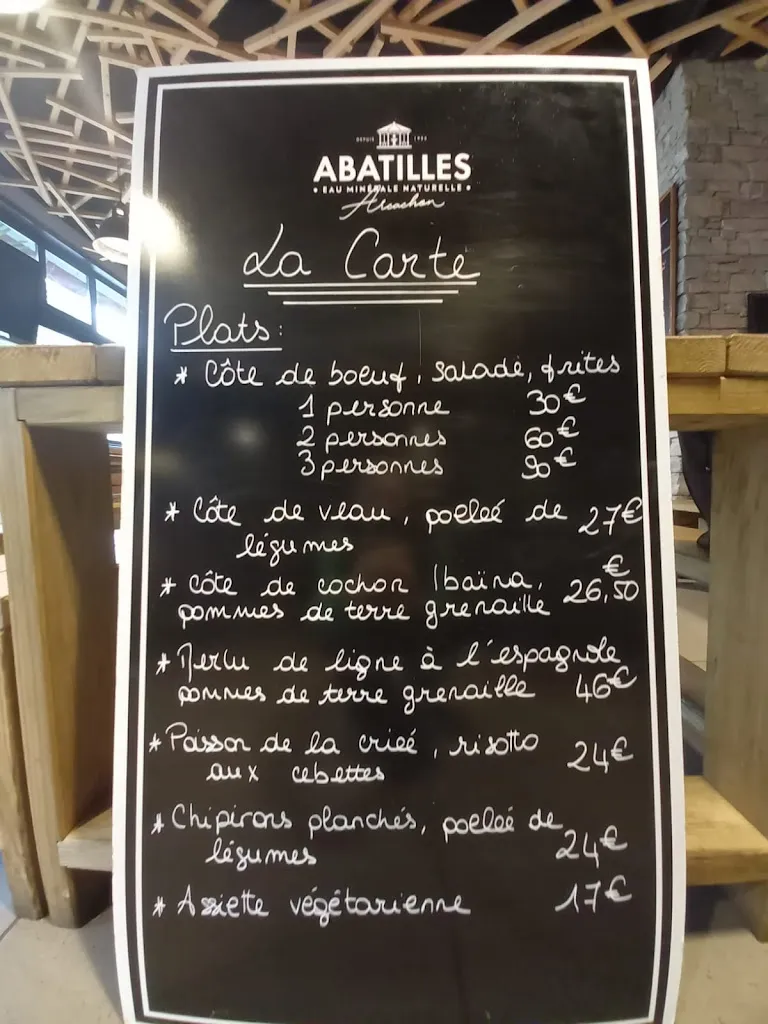 DEPUIS 1925
ABATILLES
• EAU MINÉRALE NATURELLE •
Arcachon
La Carte
Plats:
* Côte de boeuf, salade, frites
1 personne 30€
2 personnes 60€
3 personnes 90€
* Côte de veau, poeleé de 27€
légumes
* Côte de cochon Ibaïna, €
pommes de terre grenaille 26,50
* Merlu de ligne à l'espagnole
pommes de terre grenaille 46€
* Poisson de la crieé, risotto 24€
aux cebettes
* Chipirons planchés, poeleé de
légumes 24€
* Assiette végétarienne 17€